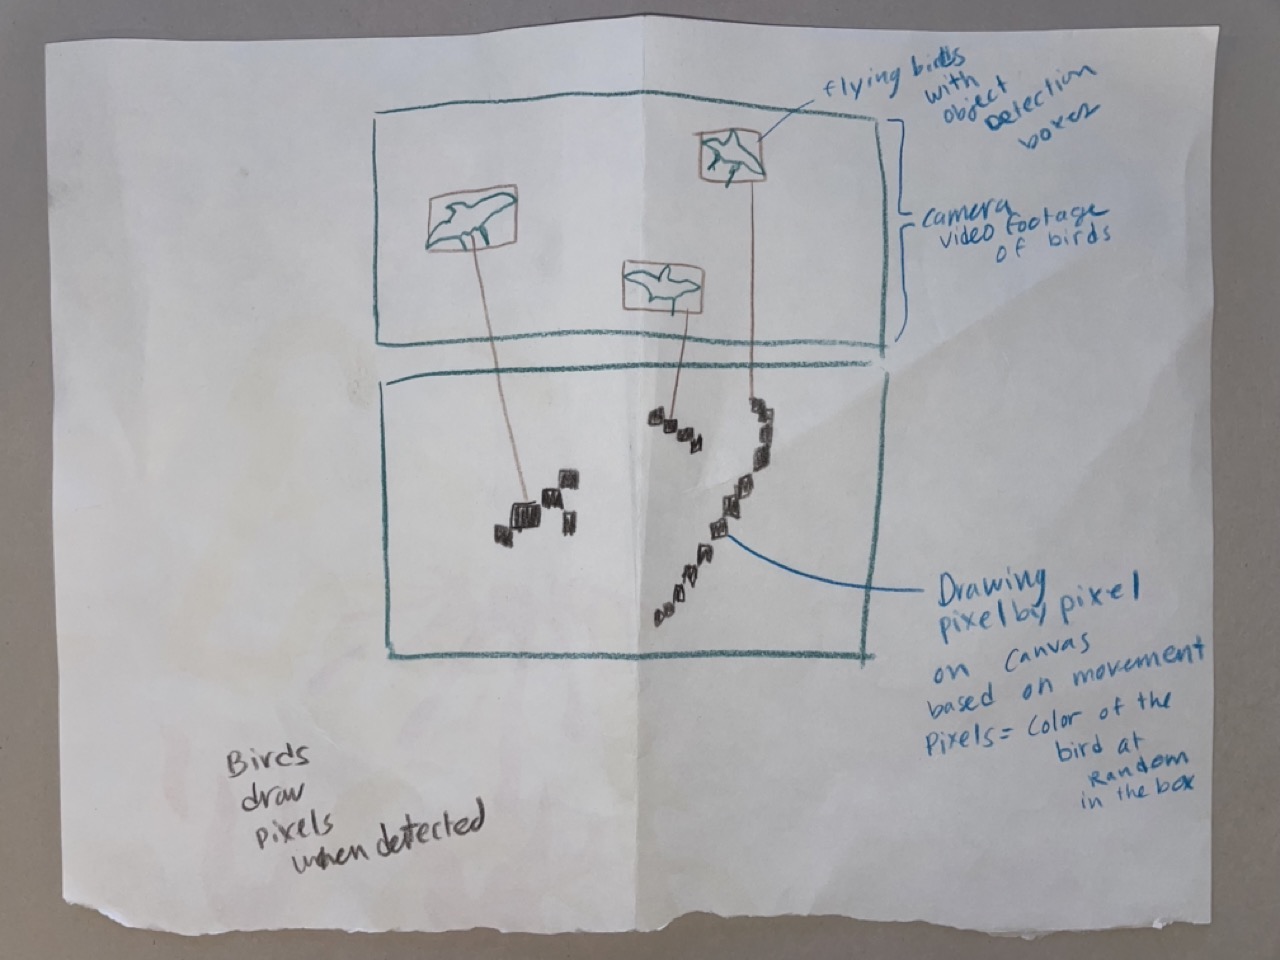 flying birds
with
object
Detection
boxes
camera
video footage
of birds
Drawing
pixel by pixel
on canvas
based on movement
Pixels = Color of the
bird at
Random
in the box
Birds
draw
pixels
when detected